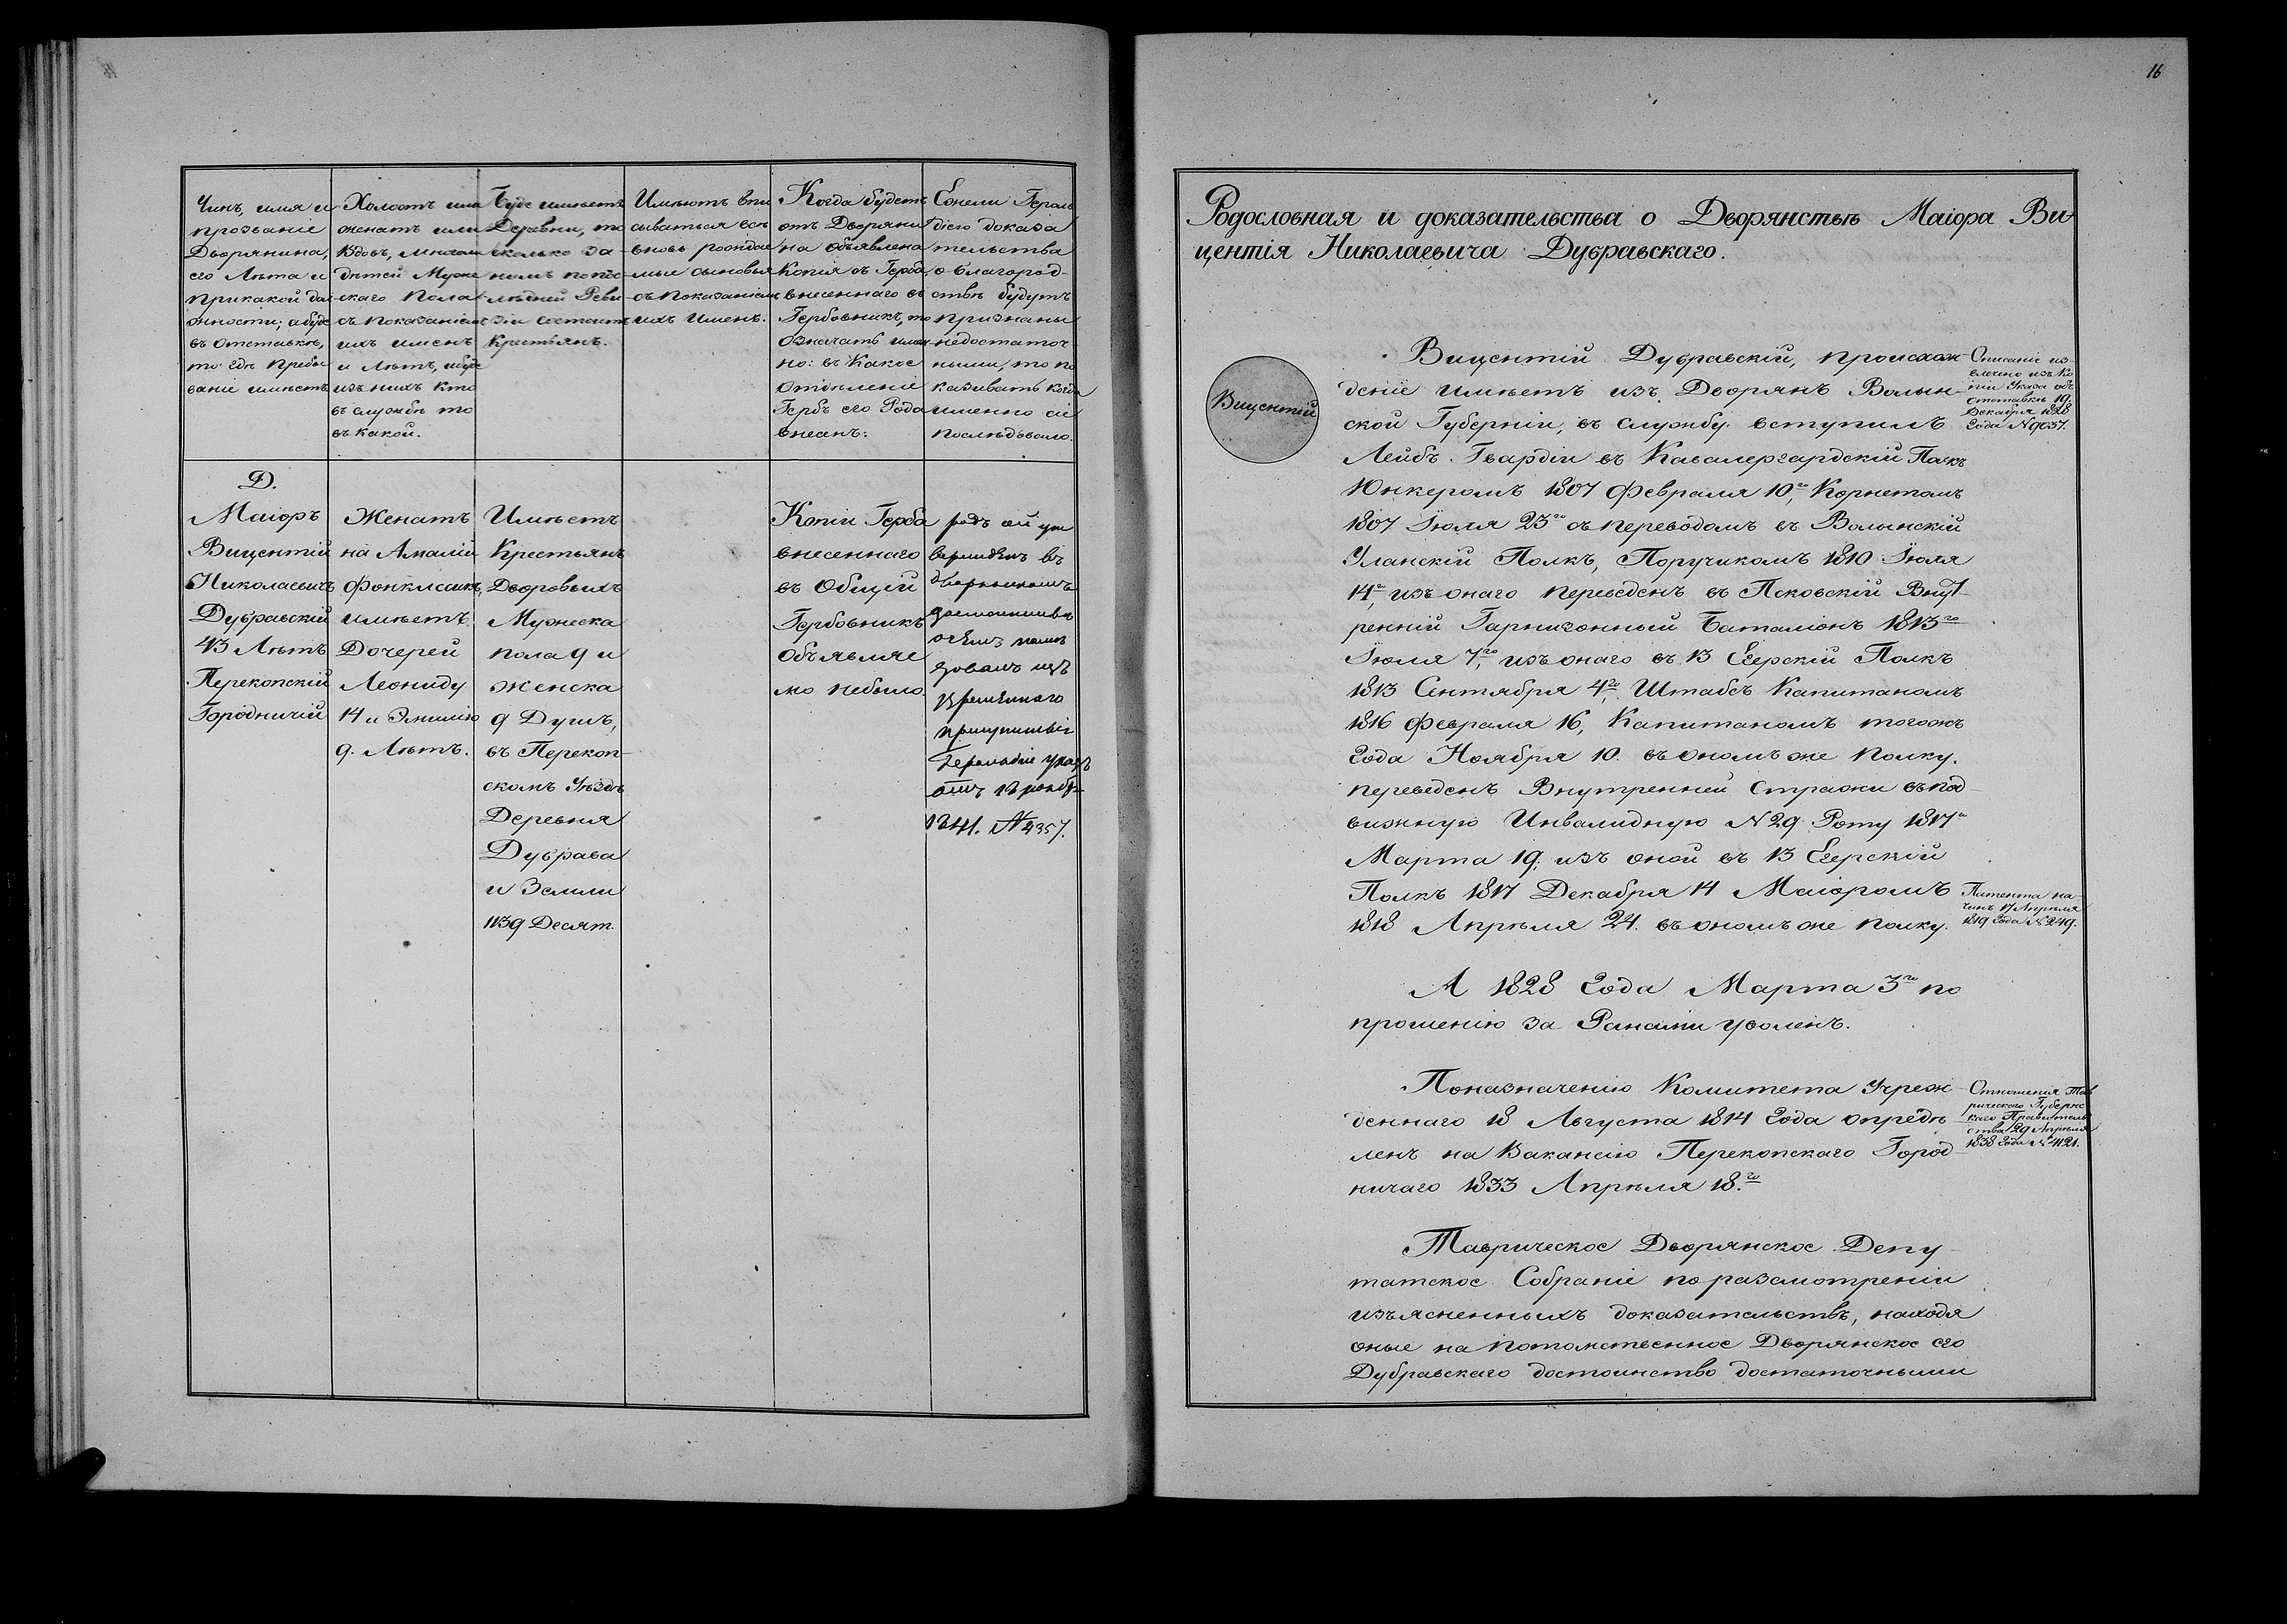 Чинъ, имя и
прозваніе
Дворянина,
его Лѣта и
при какой дол
жности; а буде
въ отставкѣ,
то гдѣ пребы
ваніе имѣетъ
Холостъ или
женатъ или
Вдовъ, многоли
дѣтей Муже
скаго пола
съ показаніемъ
ихъ именъ
и Лѣтъ, и буде
изъ нихъ кто
въ службѣ то
въ какой.
Буде имѣетъ
Деревни, то
сколько за
нимъ по пос
лѣдней Реви
зіи состоитъ
Крестьянъ.
Имѣютъ впи
сываться всѣ
вновь рождае
мые сыновья
съ показаніемъ
ихъ Именъ.
Когда будетъ
отъ Дворяни
на объявлена
Копія съ Герба
внесеннаго въ
Гербовникъ, то
означать имен
но: въ какое
отдѣленіе
Гербъ его Рода
внесенъ.
Ежели Героль
дією доказа
тельства
о благород-
ствѣ будутъ
признаны
недостаточ
ными, то по
казывать когда
именно сіе
послѣдовало.
Д.
Маіоръ
Вицентій
Николаевичъ
Дубравскій
43 Лѣтъ
Перекопскій
Городничій
Женатъ
на Амаліи
Фонклаикъ,
имѣетъ
Дочерей
Леониду
14 и Эмилію
9. Лѣтъ.
Имѣетъ
Крестьянъ
Дворовыхъ
Мужеска
пола 9 и
женска
9 Душъ,
въ Перекоп-
скомъ Уѣздѣ
Деревня
Дубрава
и Земли
1139 Десят.
Копіи Герба
внесеннаго
въ Общій
Гербовникъ
объявляе
мо небыло.
родъ сей ут
вержденъ въ
дворянскомъ
достоинствѣ
о чемъ
Герольдіи указъ
отъ
1841. № 4357.
16
Родословная и доказательства о Дворянствѣ Маіора Ви
центія Николаевича Дубравскаго.
Вицентій
Вицентій Дубравскій, происхож
деніе имѣетъ изъ Дворянъ Волын-
ской Губерніи, въ службу вступилъ
Лейбъ Гвардіи въ Кавалергардскій Полкъ
Юнкеромъ 1807 Февраля 10,го Корнетомъ
1807 Іюля 23го съ переводомъ въ Волынскій
Уланскій Полкъ, Поручикомъ 1810 Іюля
14го, изъ онаго переведенъ въ Псковскій Внут
ренній Гарнизонный Баталіонъ 1813го
Іюля 7,го изъ онаго въ 13 Егерскій Полкъ
1813 Сентября 4го, Штабсъ Капитаномъ
1816 Февраля 16, Капитаномъ тогожъ
Года Ноября 10. въ ономъ же полку.
переведенъ Внутренней Стражи въ под
вижную Инвалидную №29. Роту 1817го
Марта 19; изъ оной въ 13 Егерскій
Полкъ 1817 Декабря 14 Маіоромъ
1818 Апрѣля 24. въ ономъ же полку.
Описаніе из-
влечено изъ Ко
піи Указа объ
отставкѣ 19.
Декабря 1828
Года №9037.
Патента на
чинъ 17 Апрѣля
1819 Года №249.
А 1828 Года Марта 3го по
прошенію за Ранами уволенъ.
По назначенію Комитета Учреж
деннаго 18 Августа 1814 Года опредѣ
ленъ на Вакансію Перекопскаго Город
ничаго 1833 Апрѣля 18.го
Отношенія Тав
рическаго Губернс
каго Правитель
ства 29 Апрѣля
1838 Года № 4121.
Таврическое Дворянское Депу
татское Собраніе по разсмотреніи
изъясненныхъ доказательствъ, находя
оные на потомственное Дворянское его
Дубравскаго достоинство достаточными